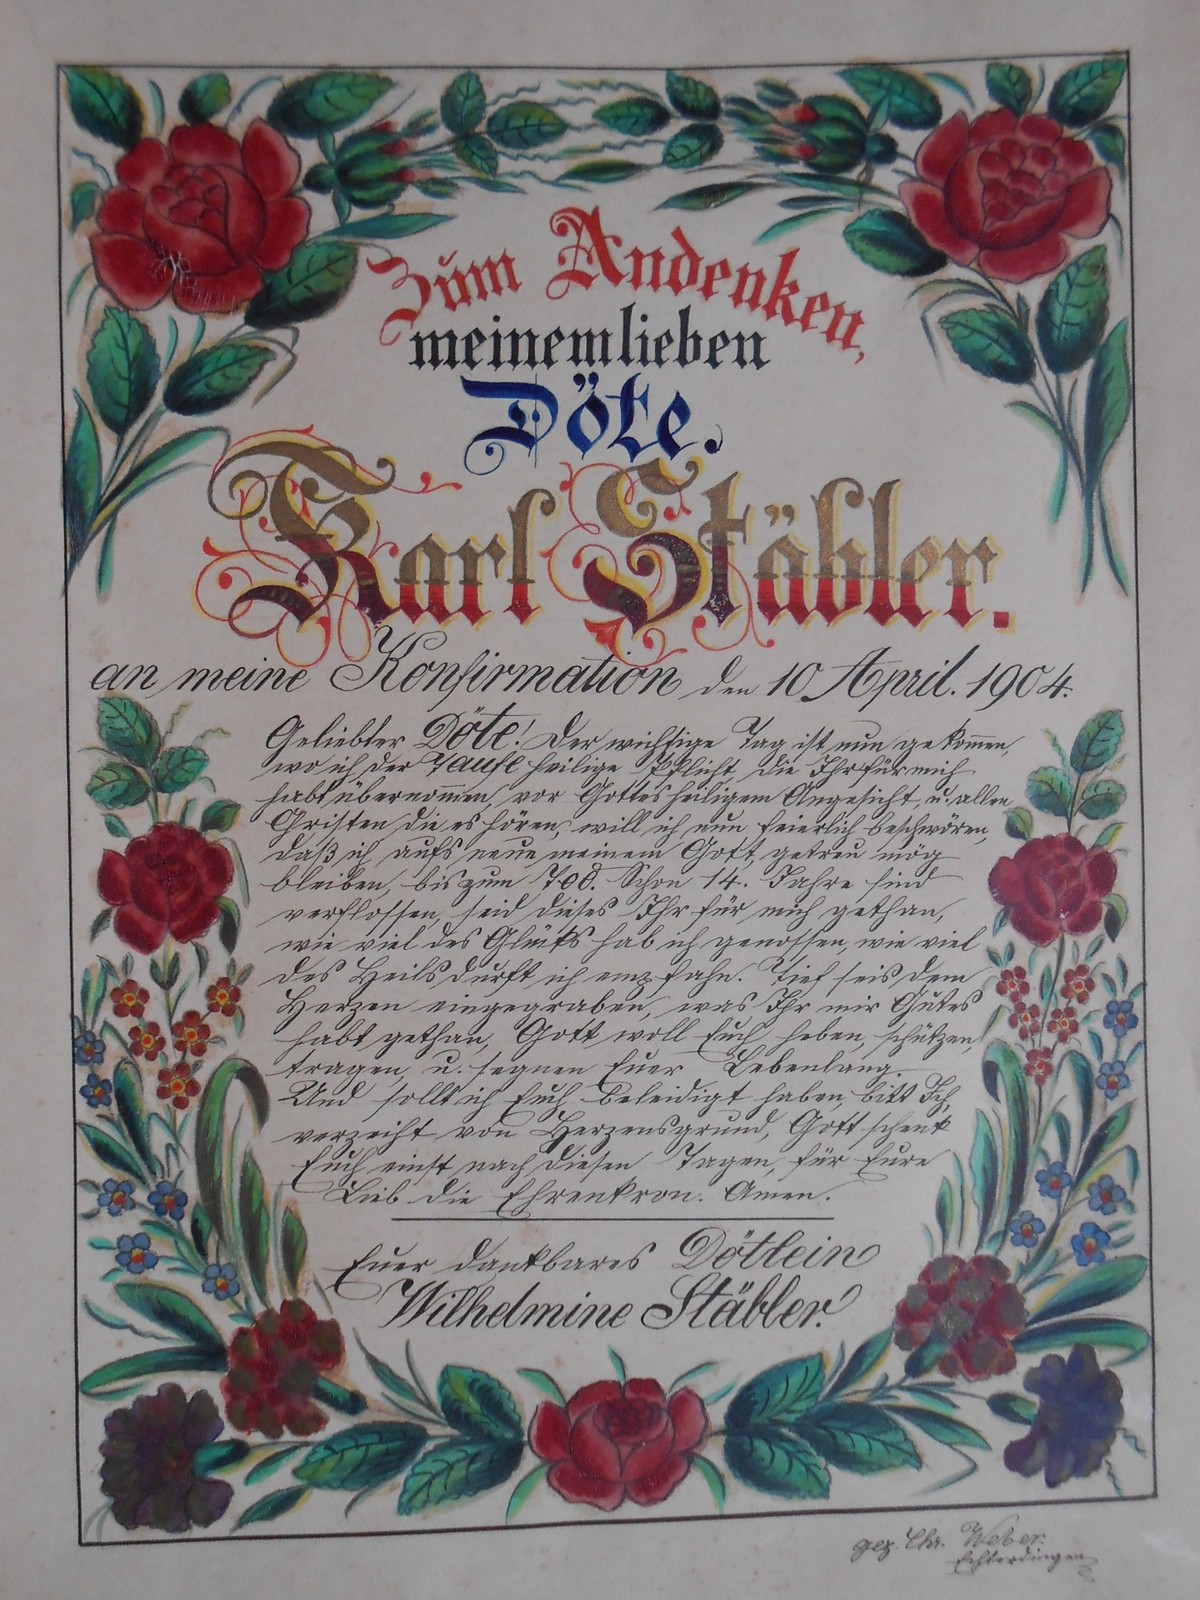 Zum Andenken,
meinem lieben
Döte.
Karl Stäbler.
an meine Konfirmation den 10 April. 1904.
Geliebter Döte! Der wichtige Tag ist nun gekom̅en,
wo ich der Taufe heilige Pflicht, die Ihr für mich
habt übernom̅en, vor Gottes heiligem Angesicht, u. allen
Christen die es hören, will ich nun feierlich beschwören,
daß ich aufs neue meinem Gott, getreu mög
bleiben, bis zum Tod. Schon 14. Jahre sind
verflossen, seid dieses Ihr für mich gethan,
wie viel des Glücks hab ich genossen, wie viel
des Heils durft ich empfahn. Tief seis dem
Herzen eingegraben, was Ihr mir Gutes
habt gethan, Gott woll Euch heben, schützen,
tragen, u. segnen Euer Lebenlang.
Und sollt ich Euch beleidigt haben, bitt Ich,
verzeiht von Herzensgrund, Gott schenk
Euch einst nach diesen Tagen, für Eure
Lieb die Ehrenkron. Amen.
Euer dankbares Dötlein
Wilhelmine Stäbler.
gez. Chr. Weber.
Echterdingen